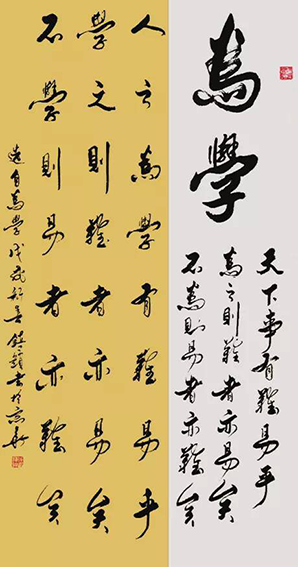 為學
天下事有難易乎
為之則難者亦易矣
不為則易者亦難矣
人之為學有難易乎
學之則難者亦易矣
不學則易者亦難矣
選自為學戊戌